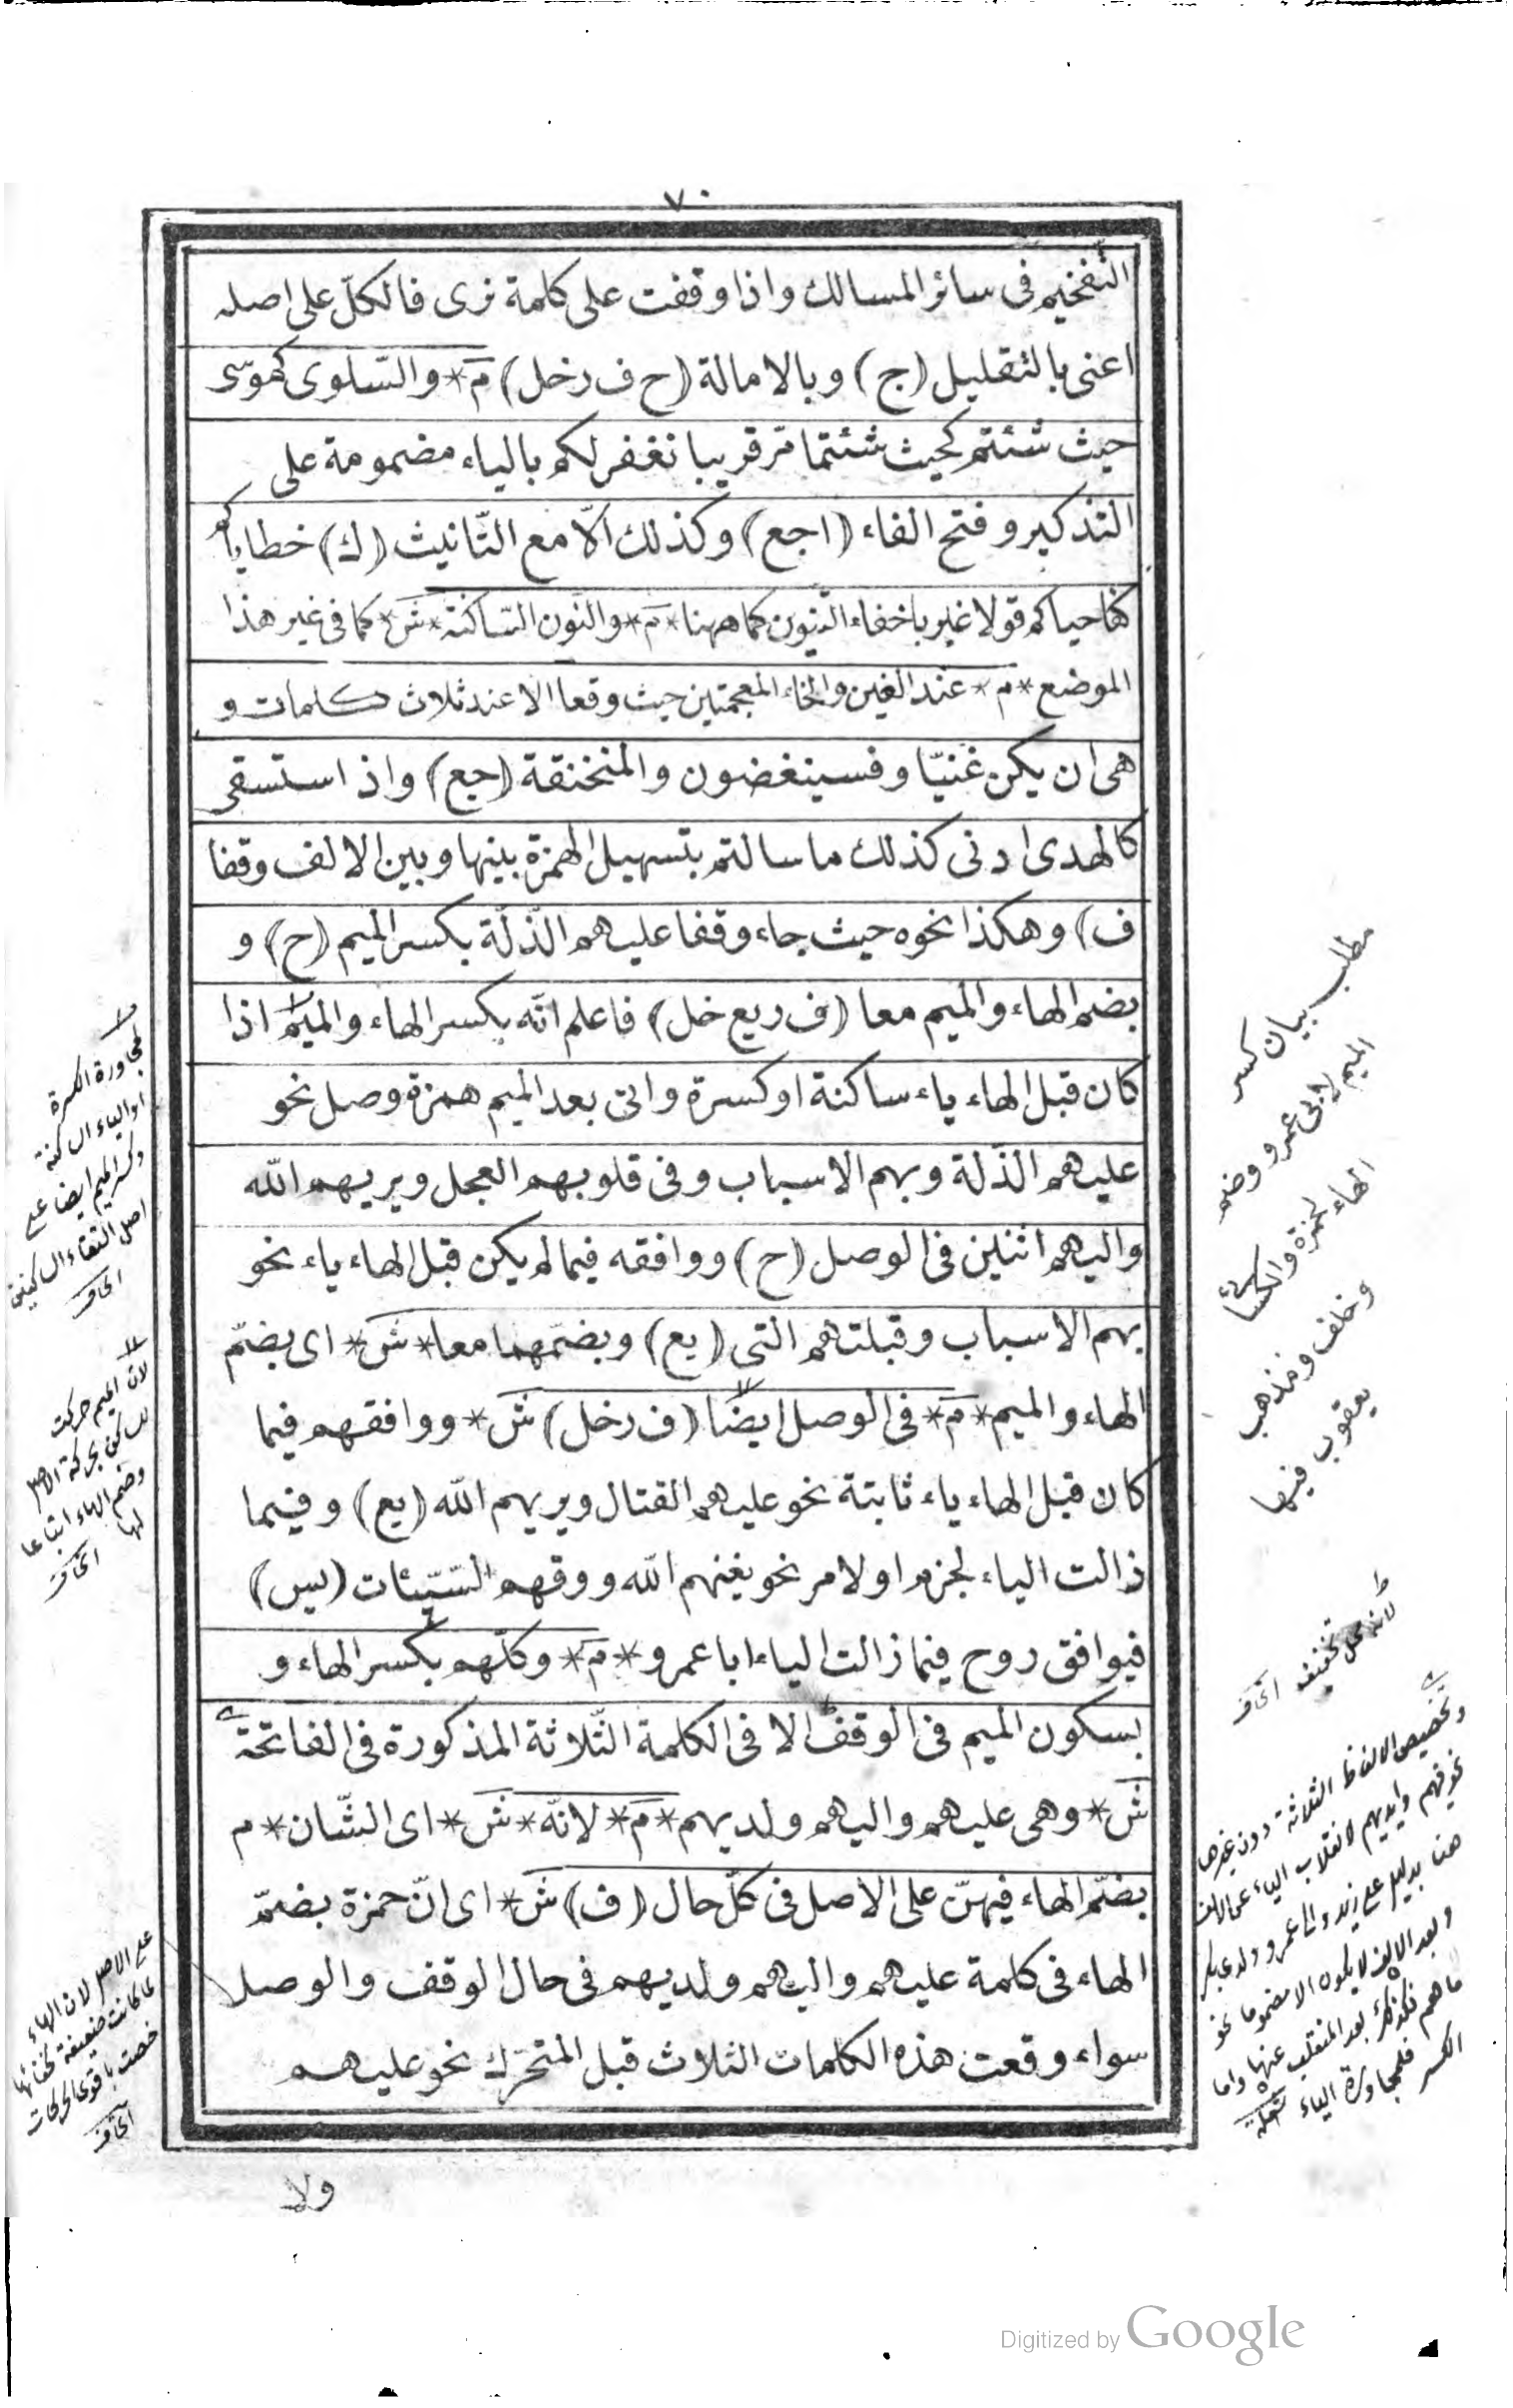 ٧٠
التّفخيم فى سائر المسالك واذا وقفت على كلمة نرى فالكلّ على اصله
اعنى بالتقليل (ج) وبالامالة (ح ف ر خل) م* والسّلوى كموسى
حيث شئتم كحيث شئتما مرّ قريبا نغفر لكم بالياء مضمومة على
التذكير وفتح الفاء (ا جع) وكذلك الّا مع التّانيث (ك) خطاياكم
كفاحياكم قولا غير باخفاء التّنوين كما ههنا *م* والنّون السّاكنة *ش* كما فى غير هذا
الموضع *م* عند الغين والخاء المعجمتين حيث وقعا الا عند ثلاث كلمات و
هى ان يكن غنيّا وفسينغضون والمنخنقة (جع) واذ استسقى
كالهدى ادنى كذلك ما سالتم بتسهيل الهمزة بينها وبين الالف وقفا
ف) وهكذا نحوه حيث جاء وقفا عليهم الذّلّة بكسر الميم (ح) و
بضم الهاء والميم معا (ف ر يع خل) فاعلم انّه بكسر الهاء والميم اذا
كان قبل الهاء ياء ساكنة او كسرة واتى بعد الميم همزة وصل نحو
عليهم الذّلة وبهم الاسباب وفى قلوبهم العجل ويريهم الله
واليهم اثنين فى الوصل (ح) ووافقه فيما لم يكن قبل الهاء ياء نحو
بهم الاسباب وقبلتهم التى (يع) وبضمّهما معا *ش* اى بضمّ
الهاء والميم *م* فى الوصل ايضًا (ف ر خل) ش* ووافقهم فيما
كان قبل الهاء ياء ثابتة نحو عليهم القتال ويريهم الله (يع) وفيما
زالت الياء لجزم او لامر نحو يغنهم الله ووقهم السّيّئات (يس)
فيوافق روح فيما زالت الياء ابا عمرو *م* وكلّهم بكسر الهاء و
بسكون الميم فى الوقف الا فى الكلمة الثّلاثة المذكورة فى الفاتحة
ش* وهى عليهم واليهم ولديهم *م* لانّه *ش* اى الشّان *م
بضمّ الهاء فيهنّ على الاصل فى كلّ حال (ف) ش* اى انّ حمزة بضمّ
الهاء فى كلمة عليهم واليهم ولديهم فى حال الوقف والوصل
سواء وقعت هذه الكلمات الثلاث قبل المتحرّك نحو عليهم
ولا
مطلب بيان كسر
الميم لابى عمرو وضم
الهاء لحمزة والكسائى
وخلف ومذهب
يعقوب فيها
لانه محل تخفيف اتحاف
وتخصيص الالفاظ الثلاثة دون غيرها
نحو فيهم وايديهم لانقلاب الياء عن الالف
هنا بدليل على زيد والى عمرو ولدى بكر
وبعد الالف لا يكون الا مضموما نحو
ما هم فكذلك بعد المنقلب عنها واما
الكسر فلمجاورة الياء
لمجاورة الكسرة
او الياء الساكنة
وكسر الميم ايضا على
اصل التقاء الساكنين
اتحاف
لان الميم حركت
للساكن بحركة الاصل
وضم الهاء اتباعا
لها اتحاف
على الاصل لان الهاء
لما كانت ضعيفة لخفائها
خصت باقوى الحركات
اتحاف
Digitized by Google